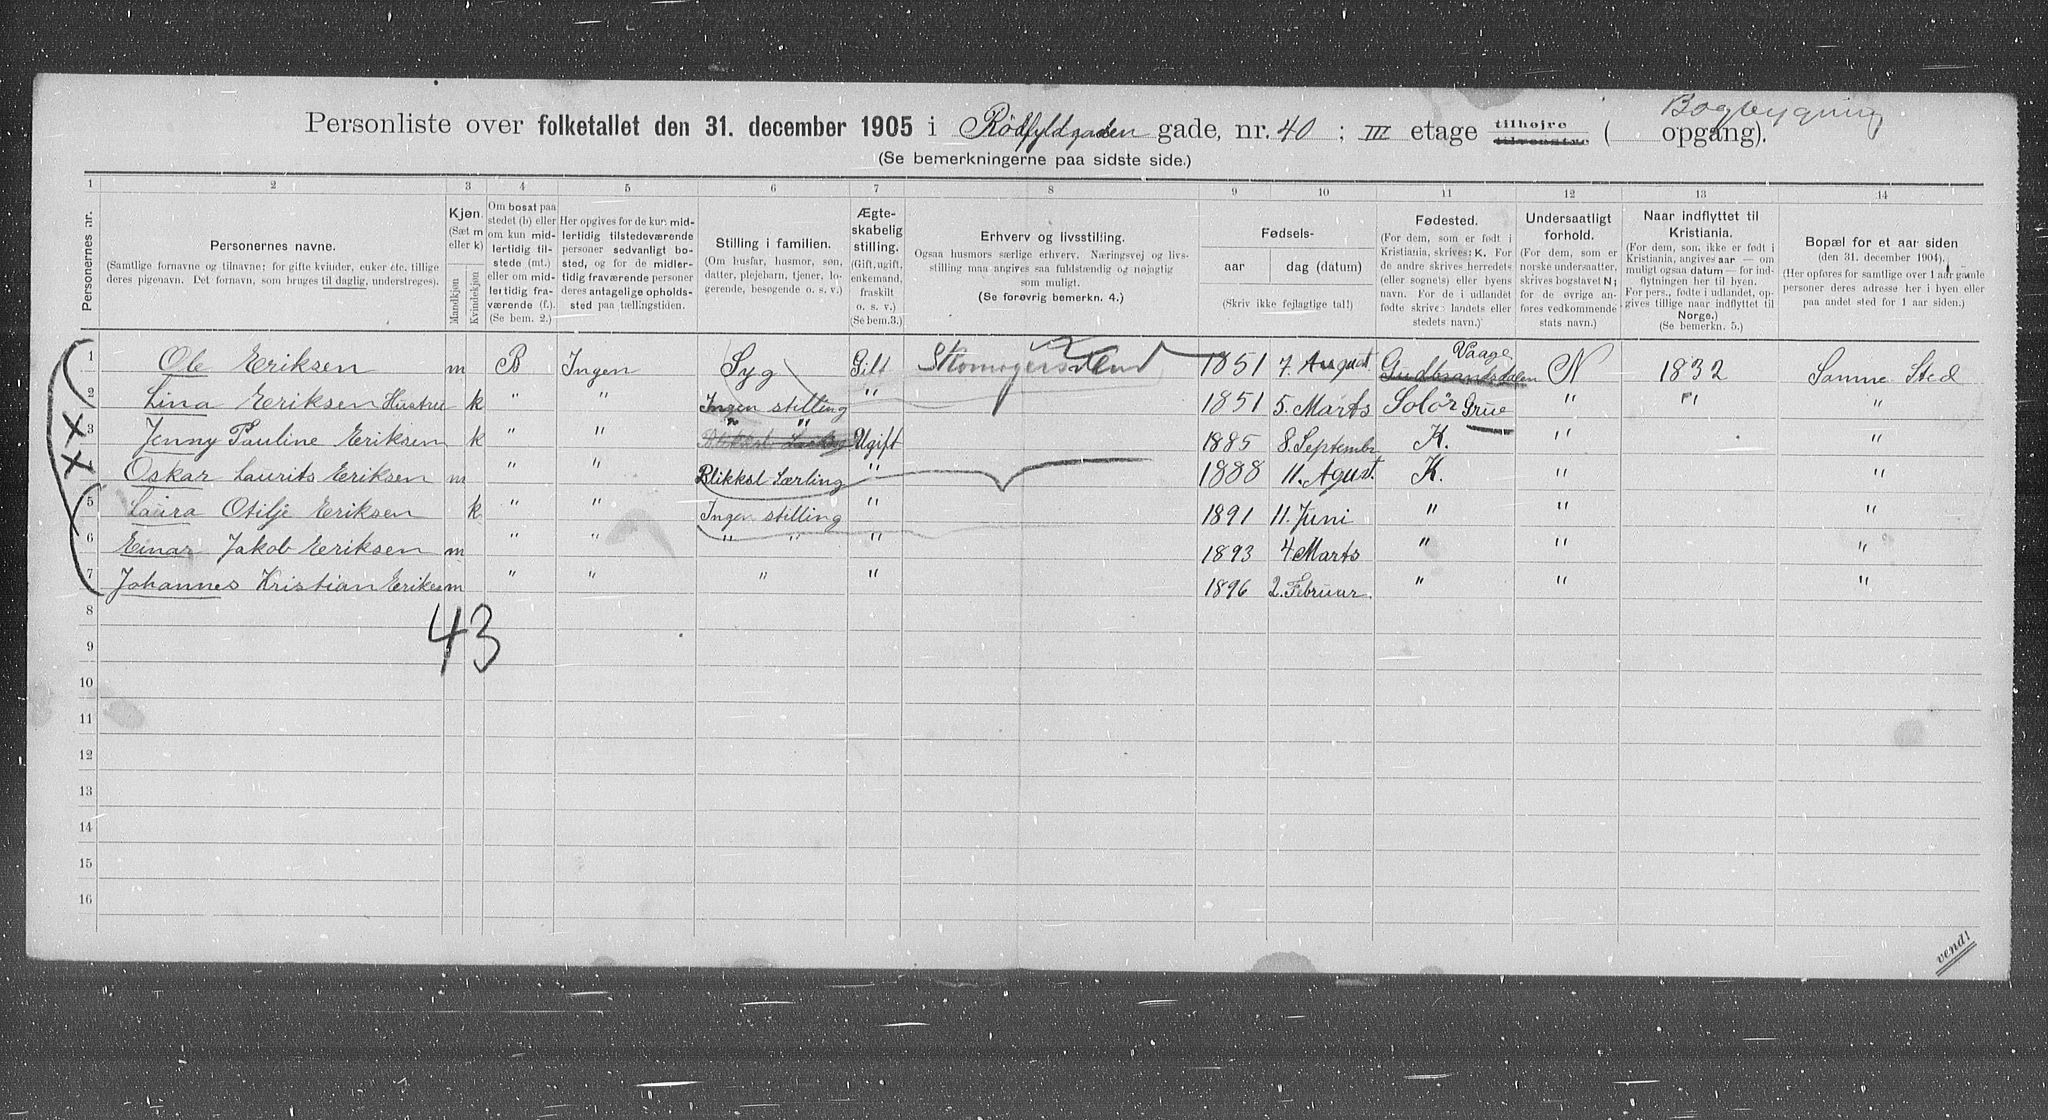 Bagbygning
Personliste over folketallet den 31. december 1905 i Rödfyldgaden gade, nr. 40 ; III etage tilhøjre tilvenstre ( opgang).
(Se bemerkningerne paa sidste side.)
1 2 3 4 5 6 7 8 9 10 11 12 13 14
Personernes nr.
Personernes navne.
(Samtlige fornavne og tilnavne; for gifte kvinder, enker etc. tillige
deres pigenavn. Det fornavn, som bruges til daglig, understreges).
Kjøn.
(Sæt m
eller k)
Mandkjøn
Kvindekjøn
Om bosat paa
stedet (b) eller
om kun mid-
lertidig til-
stede (mt.)
eller om mid-
lertidig fra-
værende (f.).
(Se bem. 2.)
Her opgives for de kun mid-
lertidig tilstedeværende
personer sedvanligt bo-
sted, og for de midler-
tidig fraværende personer
deres antagelige opholds-
sted paa tællingstiden.
Stilling i familien.
(Om husfar, husmor, søn,
datter, plejebarn, tjener, lo-
gerende, besøgende o. s. v.)
Ægte-
skabelig
stilling.
(Gift, ugift,
enkemand,
fraskilt
o. s. v.)
(Se bem.3.)
Erhverv og livsstilling.
Ogsaa husmors særlige erhverv. Næringsvej og livs-
stilling maa angives saa fuldstændig og nøjagtig
som muligt.
(Se forøvrig bemerkn. 4.)
Fødsels-
aar
dag (datum)
(Skriv ikke fejlagtige tal!)
Fødested.
(For dem, som er født i
Kristiania, skrives: K. For
de andre skrives herredets
(eller sognets) eller byens
navn. For de i udlandet
fødte skrives landets eller
stedets navn.)
Undersaatligt
forhold.
(For dem, som er
norske undersaatter,
skrives bogstavet N;
for de øvrige an-
føres vedkommende
stats navn.)
Naar indflyttet til
Kristiania.
(For dem, som ikke er født i
Kristiania, angives aar — om
muligt ogsaa datum — for ind-
flytningen her til byen.
For pers., fødte i udlandet, op-
gives tillige naar indflyttet til
Norge.)
(Se bemerkn. 5.)
Bopæl for et aar siden
(den 31. december 1904).
(Her opføres for samtlige over 1 aar gamle
personer deres adresse her i byen eller
paa andet sted for 1 aar siden.)
1 Ole Eriksen m B Ingen Syg Gift 1851 7. August Vaage Gudbrandsdalen N 1832 Samme Sted
2 Lina Eriksen Hustru k " " Ingen stilling " 1851 5. Marts Solör Grue " " "
3 Jenny Pauline Eriksen k " " " " Ugift 1885 8. Septembr K. " "
4 Oskar Laurits Eriksen m " " Blikksl Lærling " 1888 11. Agust. K. " "
5 Laura Otilje Eriksen k " " Ingen stilling " 1891 11. Juni " " "
6 Einar Jakob Eriksen m " " " " " 1893 4 Marts " " "
7 Johannes Kristian Erikes m " " " " 1896 2. Februar. " " "
8
43
9
10
11
12
13
14
15
16
vend!